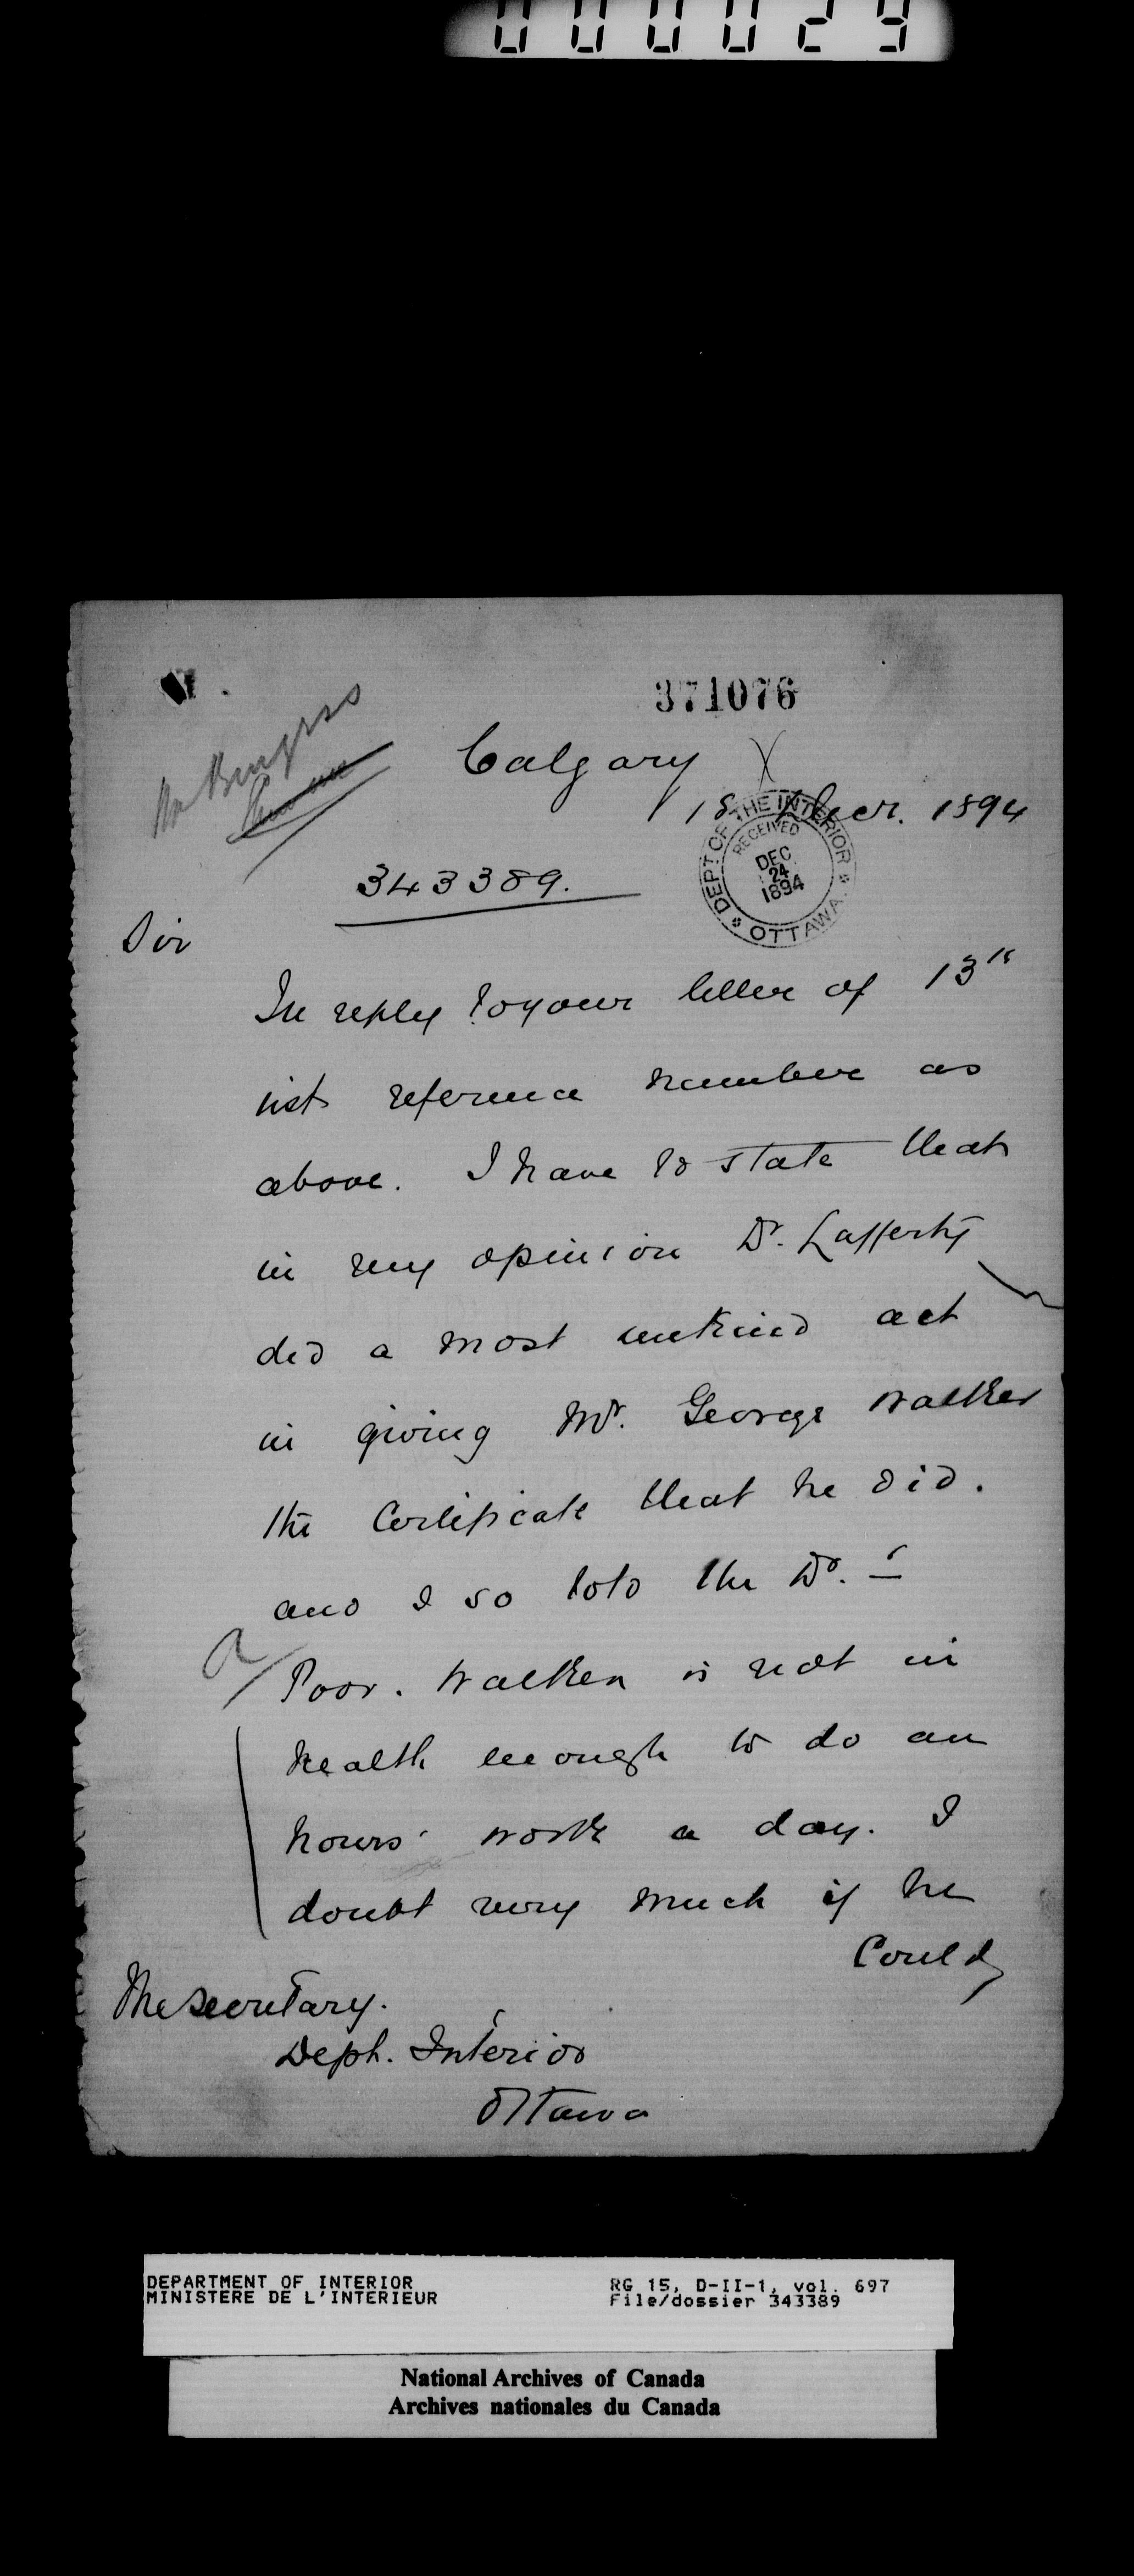 000029
371076
Mr Burgess
Calgary
18 Decr. 1894
DEPT OF THE INTERIOR
RECEIVED
DEC 24 1894
OTTAWA
343389.
Sir
In reply to your letter of 13th
inst reference number as
above. I have to state that
in my opinion Dr. Lafferty
did a most unkind act
in giving Mr. George Walker
the Certificate that he did.
and I so told the Dr. –
Poor. Walker is not in
health enough to do an
hours' work a day. I
doubt very much if he
Could
The Secretary.
Dept. Interior
Ottawa
DEPARTMENT OF INTERIOR
MINISTERE DE L'INTERIEUR
RG 15, D-II-1, vol. 697
File/dossier 343389
National Archives of Canada
Archives nationales du Canada